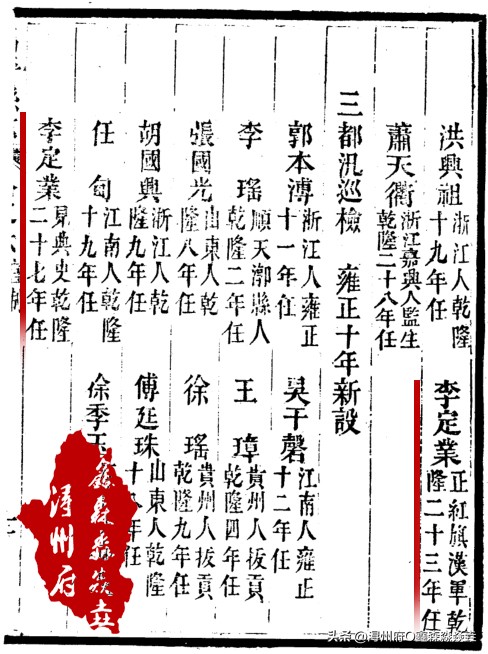 洪興祖 浙江人乾隆十九年任
李定業 正紅旗漢軍乾隆二十三年任
蕭天衢 浙江嘉興人監生乾隆二十八年任
三都汛巡檢 雍正十年新設
郭本溥 浙江人雍正十一年任
吳于磬 江南人雍正十二年任
李瑤 順天漷縣人乾隆二年任
王璋 貴州人拔貢乾隆四年任
張國光 山東人乾隆八年任
徐瑤 貴州人拔貢乾隆九年任
胡國興 浙江人乾隆九年任
傅廷珠 山東人乾隆十八年任
任匄 江南人乾隆十九年任
徐季玉
李定業 見典史乾隆二十七年任
潯州府
頭条 @潯州府